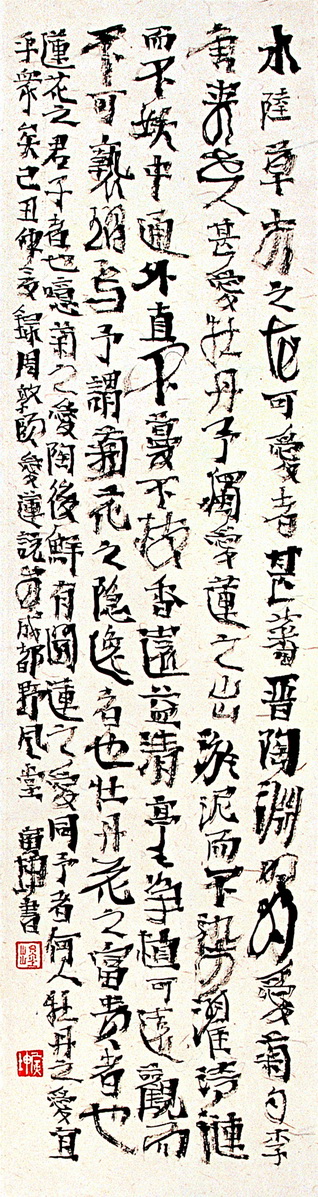 水陸草木之花可愛者甚蕃晉陶淵明獨愛菊自李
唐來世人甚愛牡丹予獨愛蓮之出淤泥而不染而濯清漣
而不妖中通外直不蔓不枝香遠益清亭亭淨植可遠觀而
不可褻翫焉予謂菊花之隱逸者也牡丹花之富貴者也
蓮花之君子者也噫菊之愛陶後鮮有聞蓮之愛同予者何人牡丹之愛宜
乎衆矣己丑仲夏錄周敦頤愛蓮說於成都野風堂 坤書